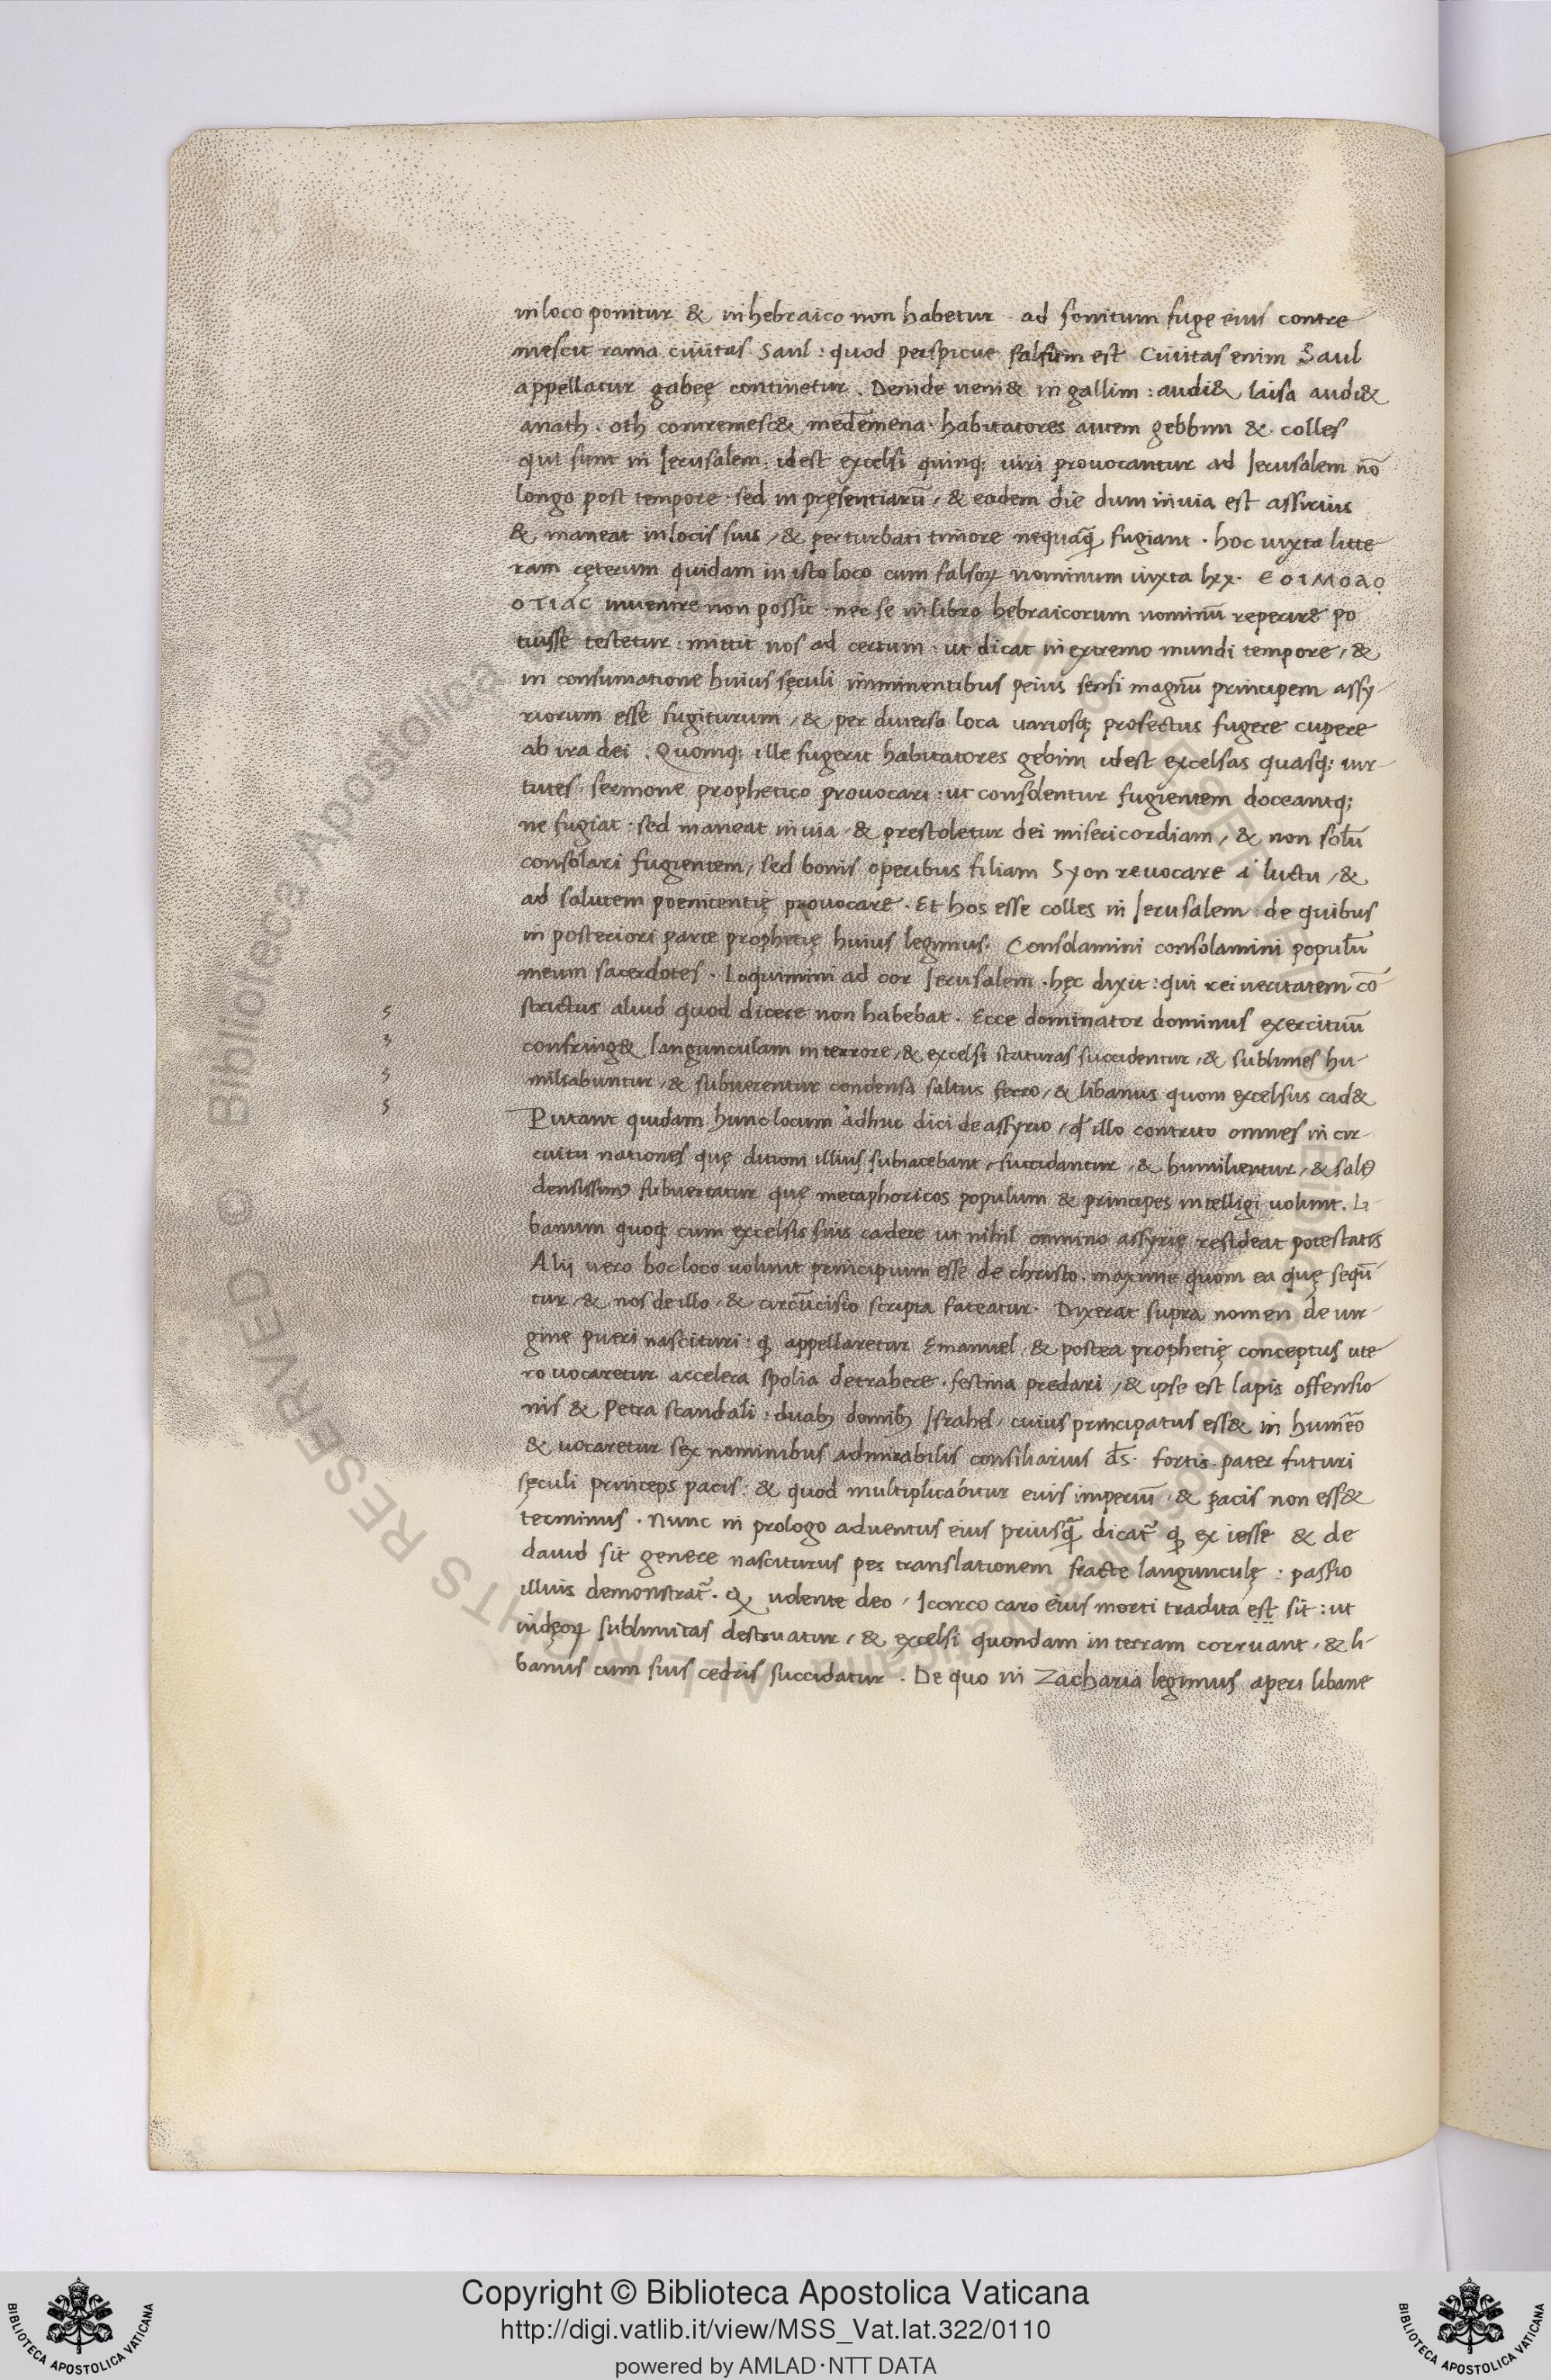 in loco ponitur & in hebraico non habetur ad sonitum fuge eius contre
mescit rama civitas Saul : quod perspicue falsum est Civitas enim Saul
appellatur gabeę continetur . Deinde veni& in gallim : audi& laisa audi&
anath . oth contremesc& medemena . habitatores autem gebbim & colles
qui sunt in Jerusalem : idest excelsi quinq; viri provocantur ad Jerusalem nō
longo post tempore . sed in pręsentiarū , & eadem die dum in via est assirius
& maneat in locis suis , & perturbati timore nequaq̄ fugiant . hoc iuxta litte
ram cęterum quidam in isto loco cum falsoꝝ nominum iuxta lxx . ЄΟΙΜΟΛΟ
ΟΤΙΑC invenire non possit . nec se in libro hebraicorum nominū reperire po
tuisse testetur : mittit nos ad certum . ut dicat in extremo mundi tempore , &
in consumatione huius sęculi imminentibus peius sensi magnū principem assy-
riorum esse fugiturum , & per diversa loca variosq; profectus fugere cupere
ab ira dei . Quomq; ille fugerit habitatores gebim idest excelsas quasq; vir-
tutes . sermone prophetico provocari : ut consolentur fugientem doceantq;
ne fugiat . sed maneat in via , & prestoletur dei misericordiam , & non solū
consolari fugientem , sed bonis operibus filiam Syon revocare a luctu , &
ad salutem poenitentię provocare . Et hos esse colles in Jerusalem : de quibus
in posteriori parte prophetię huius legimus . Consolamini consolamini populū
meum sacerdotes . Loquimini ad cor Jerusalem . hęc dixit : qui rei veritatem cō
strictus aliud quod dicere non habebat . Ecce dominator dominus exercituū
confring& langunculam in terrore , & excelsi staturas succidentur , & sublimes hu-
miliabuntur , & subverentur condensa saltus ferro , & libanus quom excelsus cad&
Putant quidam hunc locum adhuc dici de assyrio , q illo contrito omnes in cir-
cuitu nationes quę ditioni illius subiacebant , succidantur , & humilientur , & salt9
densissim9 subvertatur quę metaphoricos populum & principes intelligi volunt . Li-
banum quoq; cum excelsis suis cadere ut nihil omnino assyrię resideat potestatis
Alii vero hoc loco volunt principium esse de christo . maxime quom ea quę sequū
tur , & nos de illo , & circūcisio scripta fateatur . Dixerat supra nomen de vir-
gine pueri nascituri : ꝙ appellaretur Emanuel , & postea prophetię conceptus ute
ro vocaretur accelera spolia detrahere . festina predari , & ipse est lapis offensio
nis & Petra scandali : duabꝫ domibꝫ Israhel , cuius principatus ess& in humēo
& vocaretur sex nominibus admirabilis consiliarius d̄s . fortis . pater futuri
sęculi princeps pacis : & quod multiplicabitur eius imperiū . & pacis non ess&
terminus . Nunc in prologo adventus eius priusq̄ dicat̄ ꝙ ex iesse & de
david sit genere nasciturus per translationem fracte langunculę : passio
illius demonstrat̄ . Q volente deo , Iccirco caro eius morti tradita est sit : ut
iudęoꝝ sublimitas destruatur , & excelsi quondam in terram corruant , & li-
banus cum suis cedris succidatur . De quo in Zacharia legimus aperi libane
Copyright © Biblioteca Apostolica Vaticana
http://digi.vatlib.it/view/MSS_Vat.lat.322/0110
powered by AMLAD·NTT DATA